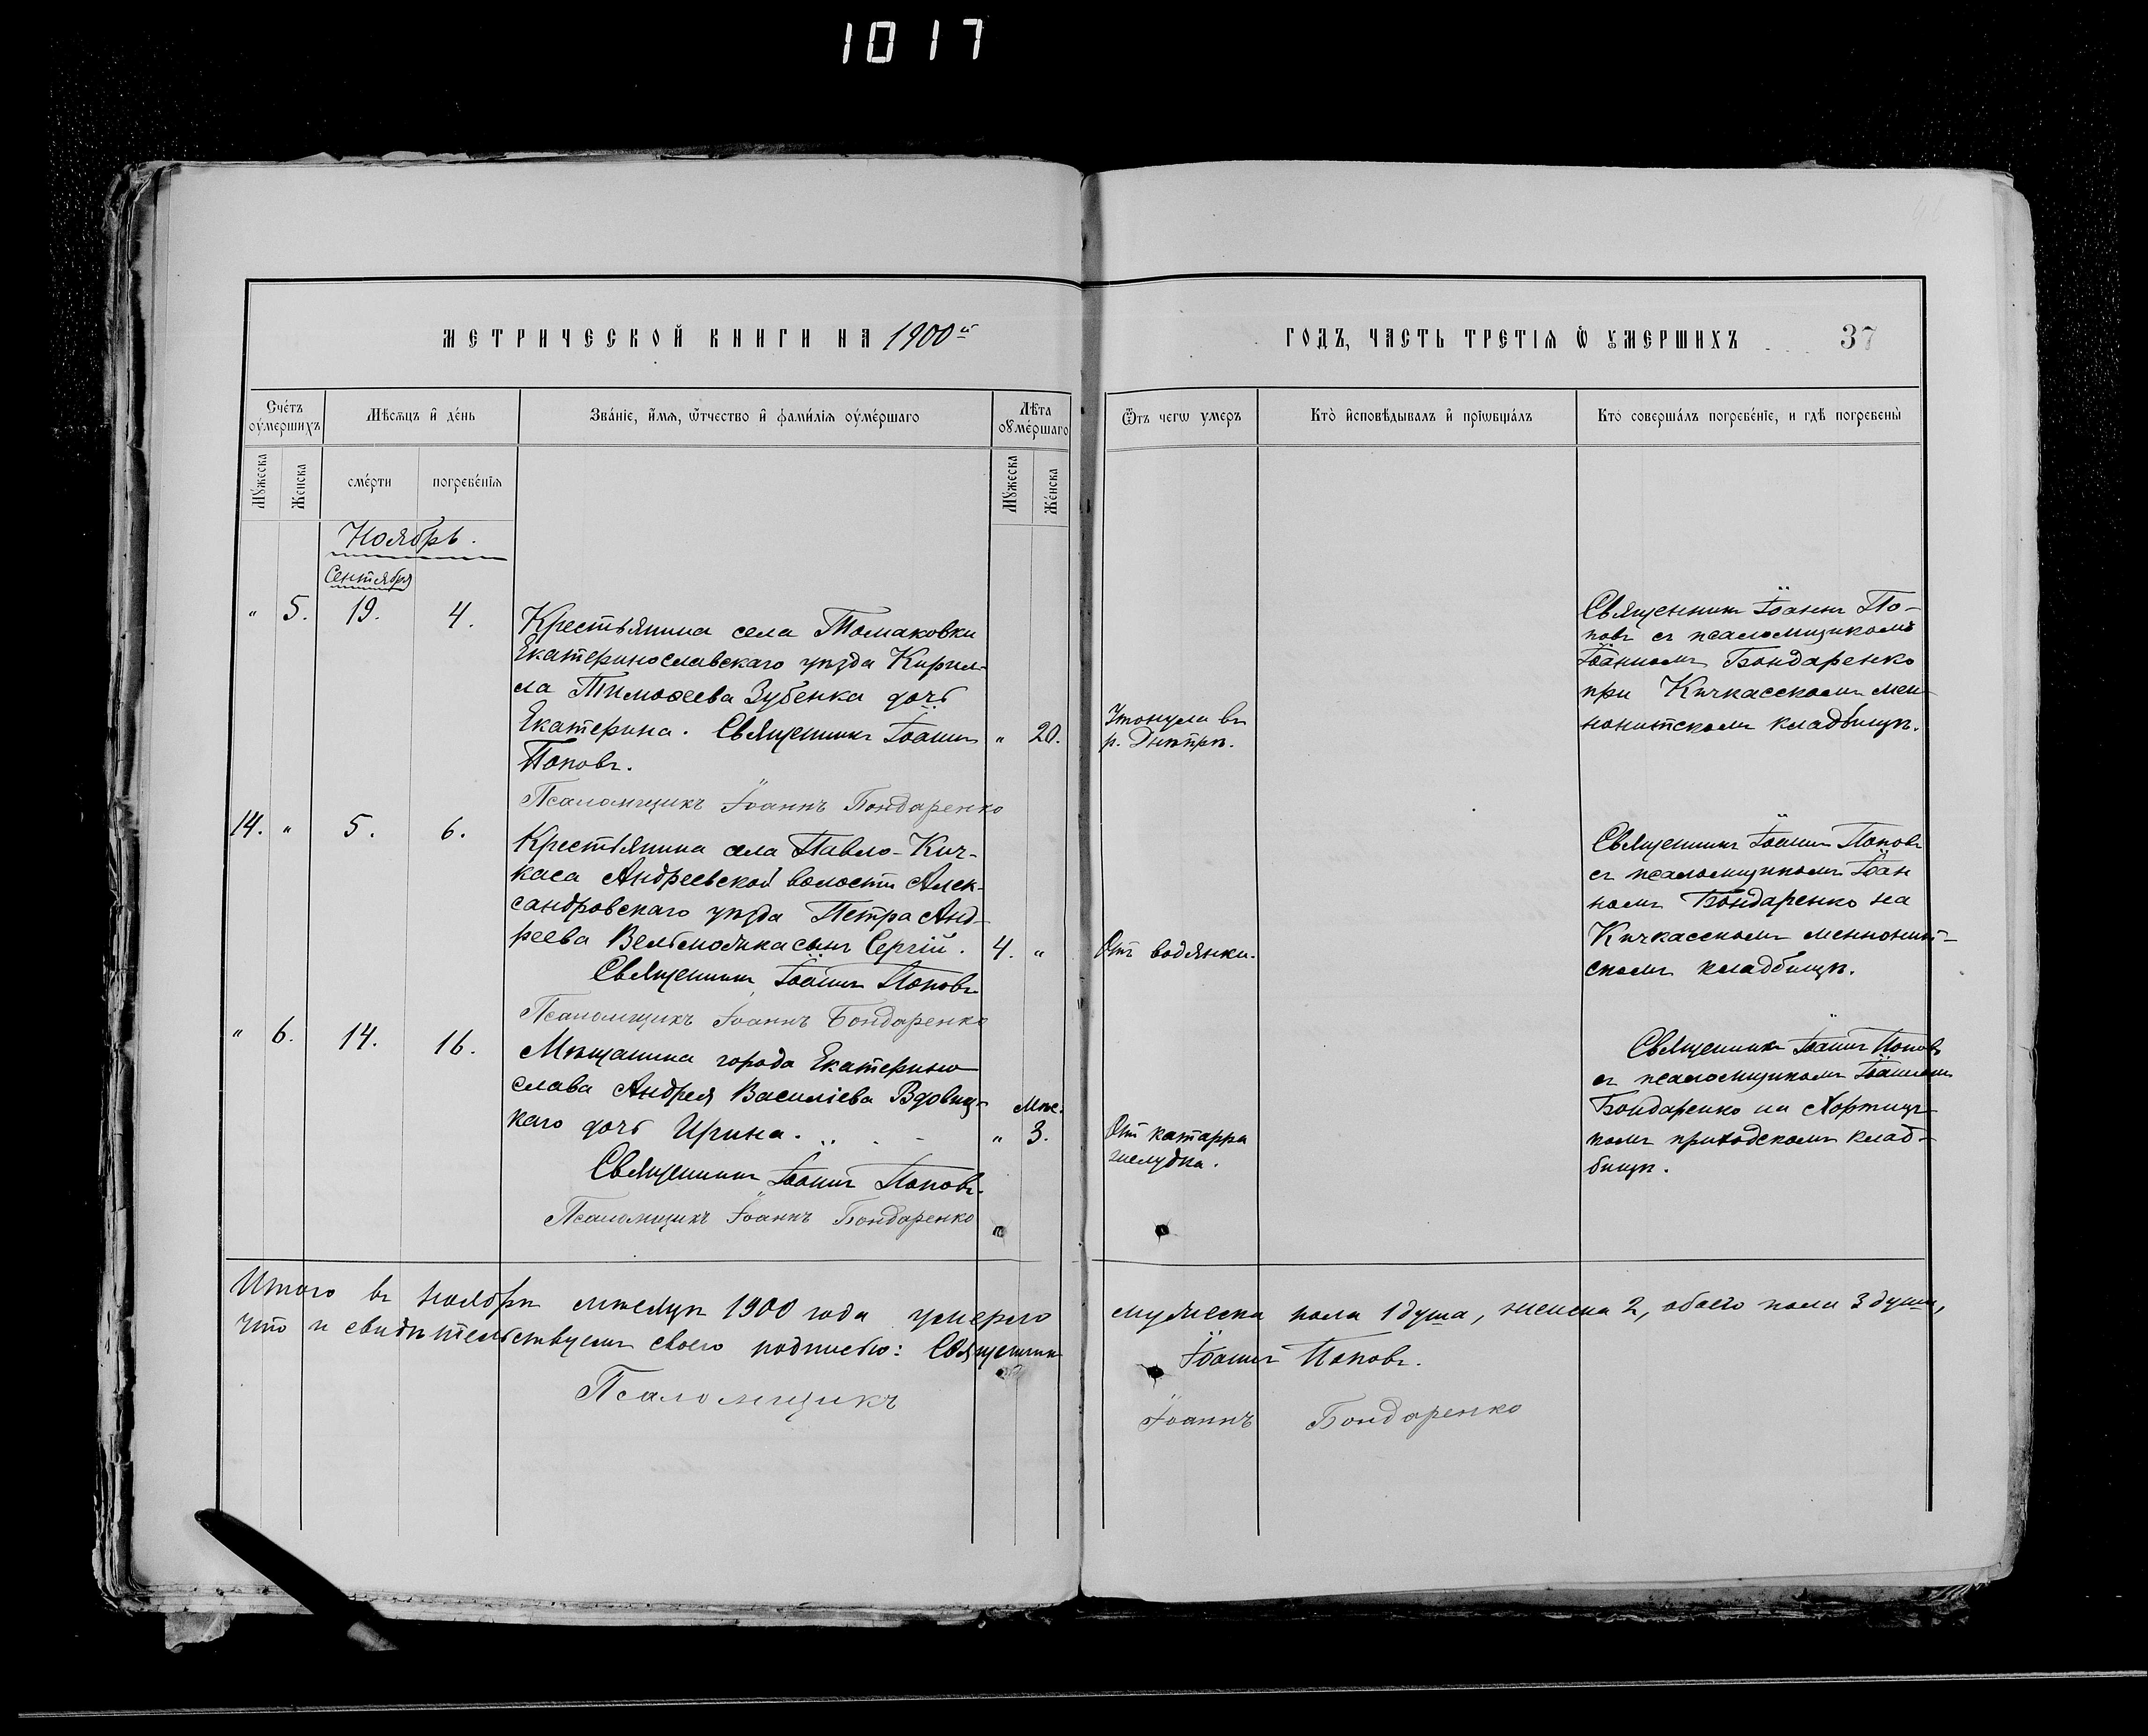 1017
МЕТРИЧЕСКОЙ КНИГИ НА 1900й
ГОДЪ, ЧАСТЬ ТРЕТІѦ Ѡ ОУМЕРШИХЪ
37
Счетъ оумершихъ
Мѣсѧцъ и день
Званіе, имѧ, ѿчество и фамиліѧ оумершаго
Лѣта оумершаго
Ѿъ чегѡ умеръ
Кто исповѣдывалъ и пріѡбщалъ
Кто совершалъ погребеніе, и гдѣ погребены
Мужеска
Женска
смерти
погребеніѧ
Мужеска
Женска
Ноябрь.
Сентября
" 5. 19. 4.
Крестьянина села Томаковки
Екатеринославскаго уѣзда Кирил-
ла Тимоѳеева Зубенка дочь
Екатерина. Священникъ Іоаннъ
Поповъ.
Псаломщикъ Іоаннъ Бондаренко
" 20.
Утонула въ
р. Днѣпрѣ.
Священникъ Іоаннъ По-
повъ съ псаломщикомъ
Іоанномъ Бондаренко
при Кичкасскомъ мен-
нонитскомъ кладбищѣ.
14. " 5. 6.
Крестьянина села Павло-Кич-
каса Андреевской волости Алек-
сандровскаго уѣзда Петра Анд-
реева Вельможка сынъ Сергій.
Священникъ Іоаннъ Поповъ
Псаломщикъ Іоаннъ Бондаренко
4. "
Отъ водянки.
Священникъ Іоаннъ Поповъ
съ псаломщикомъ Іоан
номъ Бондаренко на
Кичкасскомъ меннонит-
скомъ кладбищѣ.
" 6. 14. 16.
Мѣщанина города Екатерино-
слава Андрея Василіева Вдовиц-
каго дочь Ирина.
Священникъ Іоаннъ Поповъ.
Псаломщикъ Іоаннъ Бондаренко
Мѣс.
" 3.
Отъ катарра
желудка.
Священникъ Іоаннъ Поповъ
съ псаломщикомъ Іоанномъ
Бондаренко на Хортиц-
комъ приходскомъ клад-
бищѣ.
Итого въ ноябрѣ мѣсяцѣ 1900 года умерло мужеска пола 1 душа, женска 2, обоего пола 3 души,
что и свидѣтельствуемъ своею подписью: Священникъ Іоаннъ Поповъ.
Псаломщикъ Іоаннъ Бондаренко